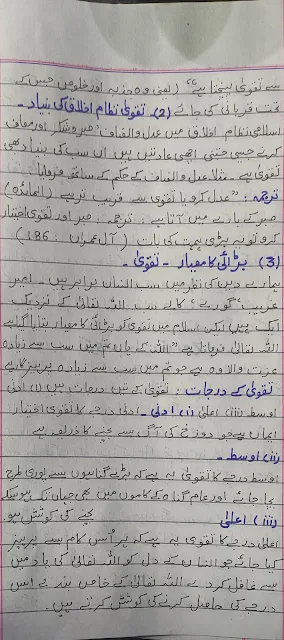 سے تقویٰ پہنچتا ہے" (یعنی وہ جذبہ اور خلوص جس کے
تحت قربانی کی جائے (2) تقویٰ نظام اخلاق کی بنیاد۔
اسلامی نظام اخلاق میں عدل و انصاف، صبر و شکر اور معاف
کرنے جیسی جتنی اچھی عادتیں ہیں ان سب کی بنیاد بھی
تقویٰ ہے۔ مثلا عدل و انصاف کے حکم کے ساتھ فرمایا
ترجمہ: "عدل کرو یا تقویٰ سے قریب تر ہے (المائدہ)
صبر کے بارے میں آتا ہے: ترجمہ: صبر اور تقویٰ اختیار
کرو تو یہ بڑی ہمت کی بات (آل عمران: 186)
(3) بڑائی کا معیار - تقویٰ -
ہمارے دین کی نظر میں سب انسان برابر ہیں۔ امیر
غریب، گورے، کالے سب اللہ تعالیٰ کے نزدیک
ایک ہیں لیکن اسلام میں تقویٰ کو بڑائی کا معیار بتایا گیا ہے
اللہ تعالیٰ فرماتا ہے "اللہ کے ہاں تم میں سب سے زیادہ
عزت والا وہ ہے جو تم میں سب سے زیادہ پرہیز گار ہے
تقویٰ کے درجات: تقویٰ کے تین درجات ہیں (i) ادنیٰ
اوسط (iii) اعلیٰ (i) ادنیٰ - ادنیٰ درجے کا تقویٰ اختیار
ایمان ہے جو دوزخ کی آگ سے بچنے کا ذریعہ ہے
(ii) اوسط -
اوسط درجے کا تقویٰ یہ ہے کہ بڑے گناہوں سے پوری طرح
بچا جائے اور عام گناہ کے کاموں میں بھی جہاں تک ہو سکے
بچنے کی کوشش ہو۔
(iii) اعلیٰ
اعلیٰ درجے کا تقویٰ یہ ہے کہ ہر اُس کام سے پرہیز
کیا جائے جو انسان کے دل کو اللہ تعالیٰ کی یاد میں
سے غافل کر دے اللہ تعالیٰ کے خاص بندے اس
درجے کی حاصل کرنے کی کوشش کرتے ہیں۔